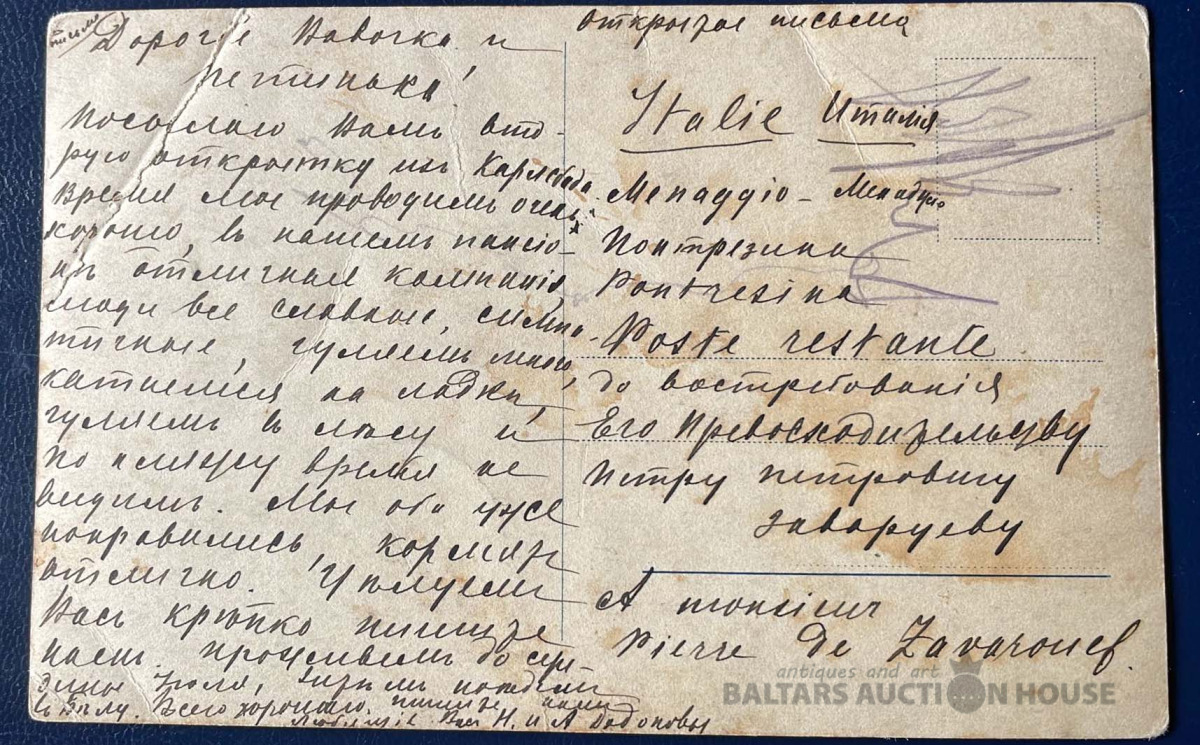 письмо
Дорогiе Вавочка и
петинька!
Посылаю Вамъ вто-
рую открытку изъ Карлсбада
время мы проводимъ очень
хорошо, въ нашемъ пансiо-
нѣ отличная кампанiя,
люди все славные, симпа-
тичные, гуляемъ много,
катаемся на лодки,
гуляемъ въ лѣсу и
по пляжу время не
видимъ. Мы оба уже
поправились, кормятъ
отлично. Цѣлуемъ
Васъ крѣпко пишите
намъ. Проживемъ до сере-
дины Iюля, затѣмъ поѣдемъ
Всего хорошаго. пишите намъ
Любящiе Васъ Н. и А Додоновы
открытое письмо
Italie Италiя
Menaggio - Менаджiо
Понтрезина
Pontresina
Poste restante
до востребованiя
Его Превосходительству
Петру петровичу
Заваруеву
A monsieur
Pierre de Zavarouef.
antiques and art
BALTARS AUCTION HOUSE